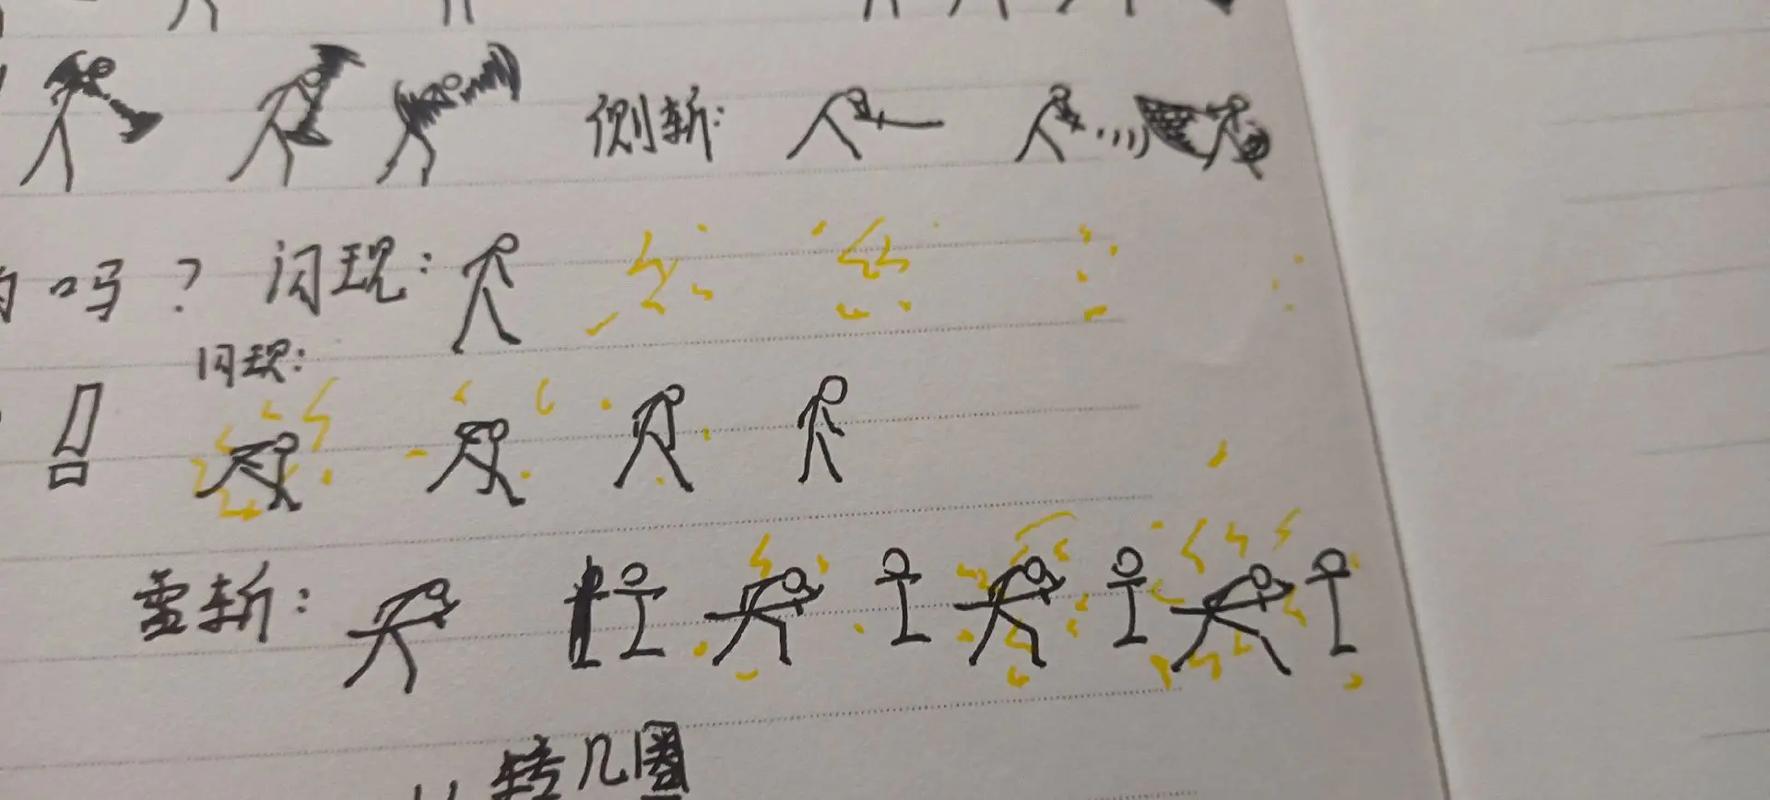 侧斩:
吗? 闪现:
闪现:
!
雷斩:
转几圈